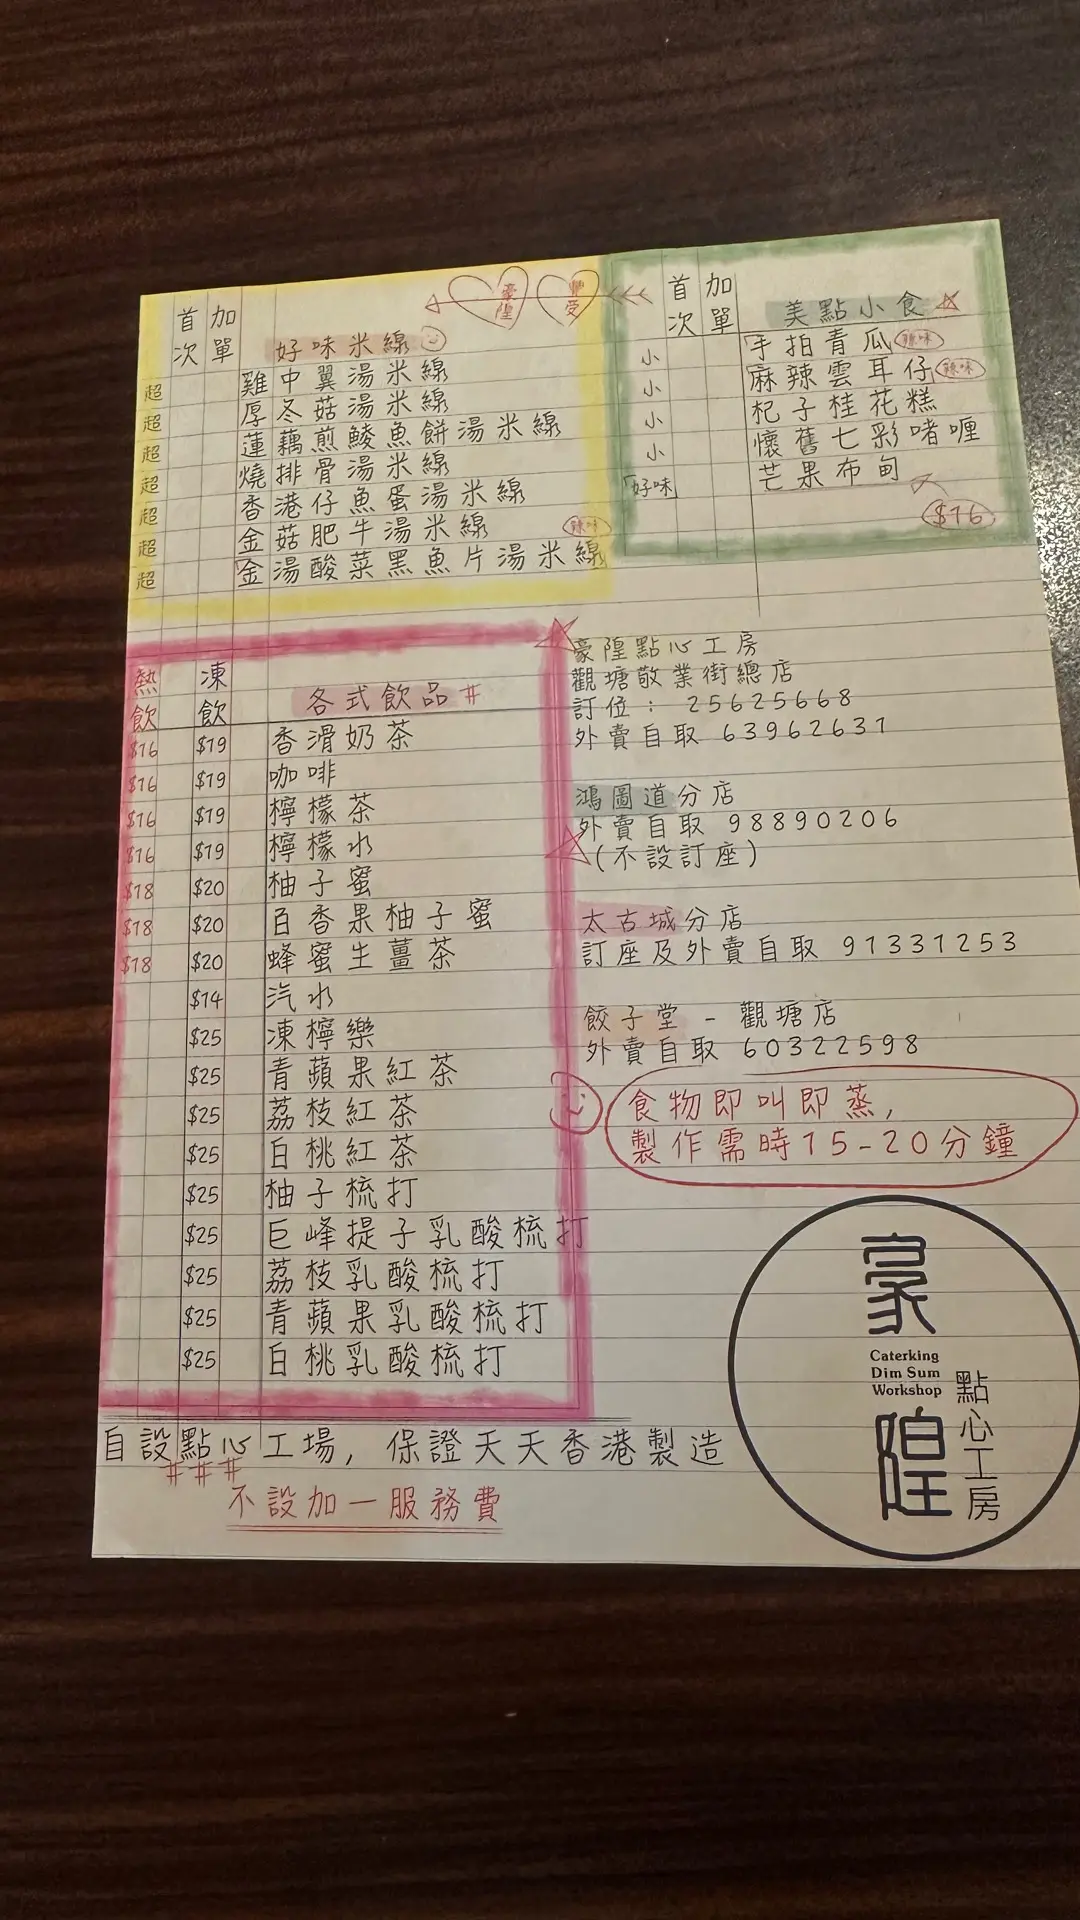 豪隍
豐受
首次 加單 好味米線
超 雞中翼湯米線
超 厚冬菇湯米線
超 蓮藕煎鯪魚餅湯米線
超 燒排骨湯米線
超 香港仔魚蛋湯米線
超 金菇肥牛湯米線 辣味
超 金湯酸菜黑魚片湯米線
首次 加單 美點小食
小 手拍青瓜 辣味
小 麻辣雲耳仔 辣味
小 杞子桂花糕
小 懷舊七彩啫喱
好味 芒果布甸
$16
熱飲 凍飲 各式飲品#
$16 $19 香滑奶茶
$16 $19 咖啡
$16 $19 檸檬茶
$16 $19 檸檬水
$18 $20 柚子蜜
$18 $20 百香果柚子蜜
$18 $20 蜂蜜生薑茶
$14 汽水
$25 凍檸樂
$25 青蘋果紅茶
$25 荔枝紅茶
$25 白桃紅茶
$25 柚子梳打
$25 巨峰提子乳酸梳打
$25 荔枝乳酸梳打
$25 青蘋果乳酸梳打
$25 白桃乳酸梳打
豪隍點心工房
觀塘敬業街總店
訂位：25625668
外賣自取 63962631
鴻圖道分店
外賣自取 98890206
(不設訂座)
太古城分店
訂座及外賣自取 91331253
餃子堂 - 觀塘店
外賣自取 60322598
食物即叫即蒸,
製作需時15-20分鐘
豪隍
Caterking
Dim Sum
Workshop
點心工房
自設點心工場, 保證天天香港製造
###
不設加一服務費